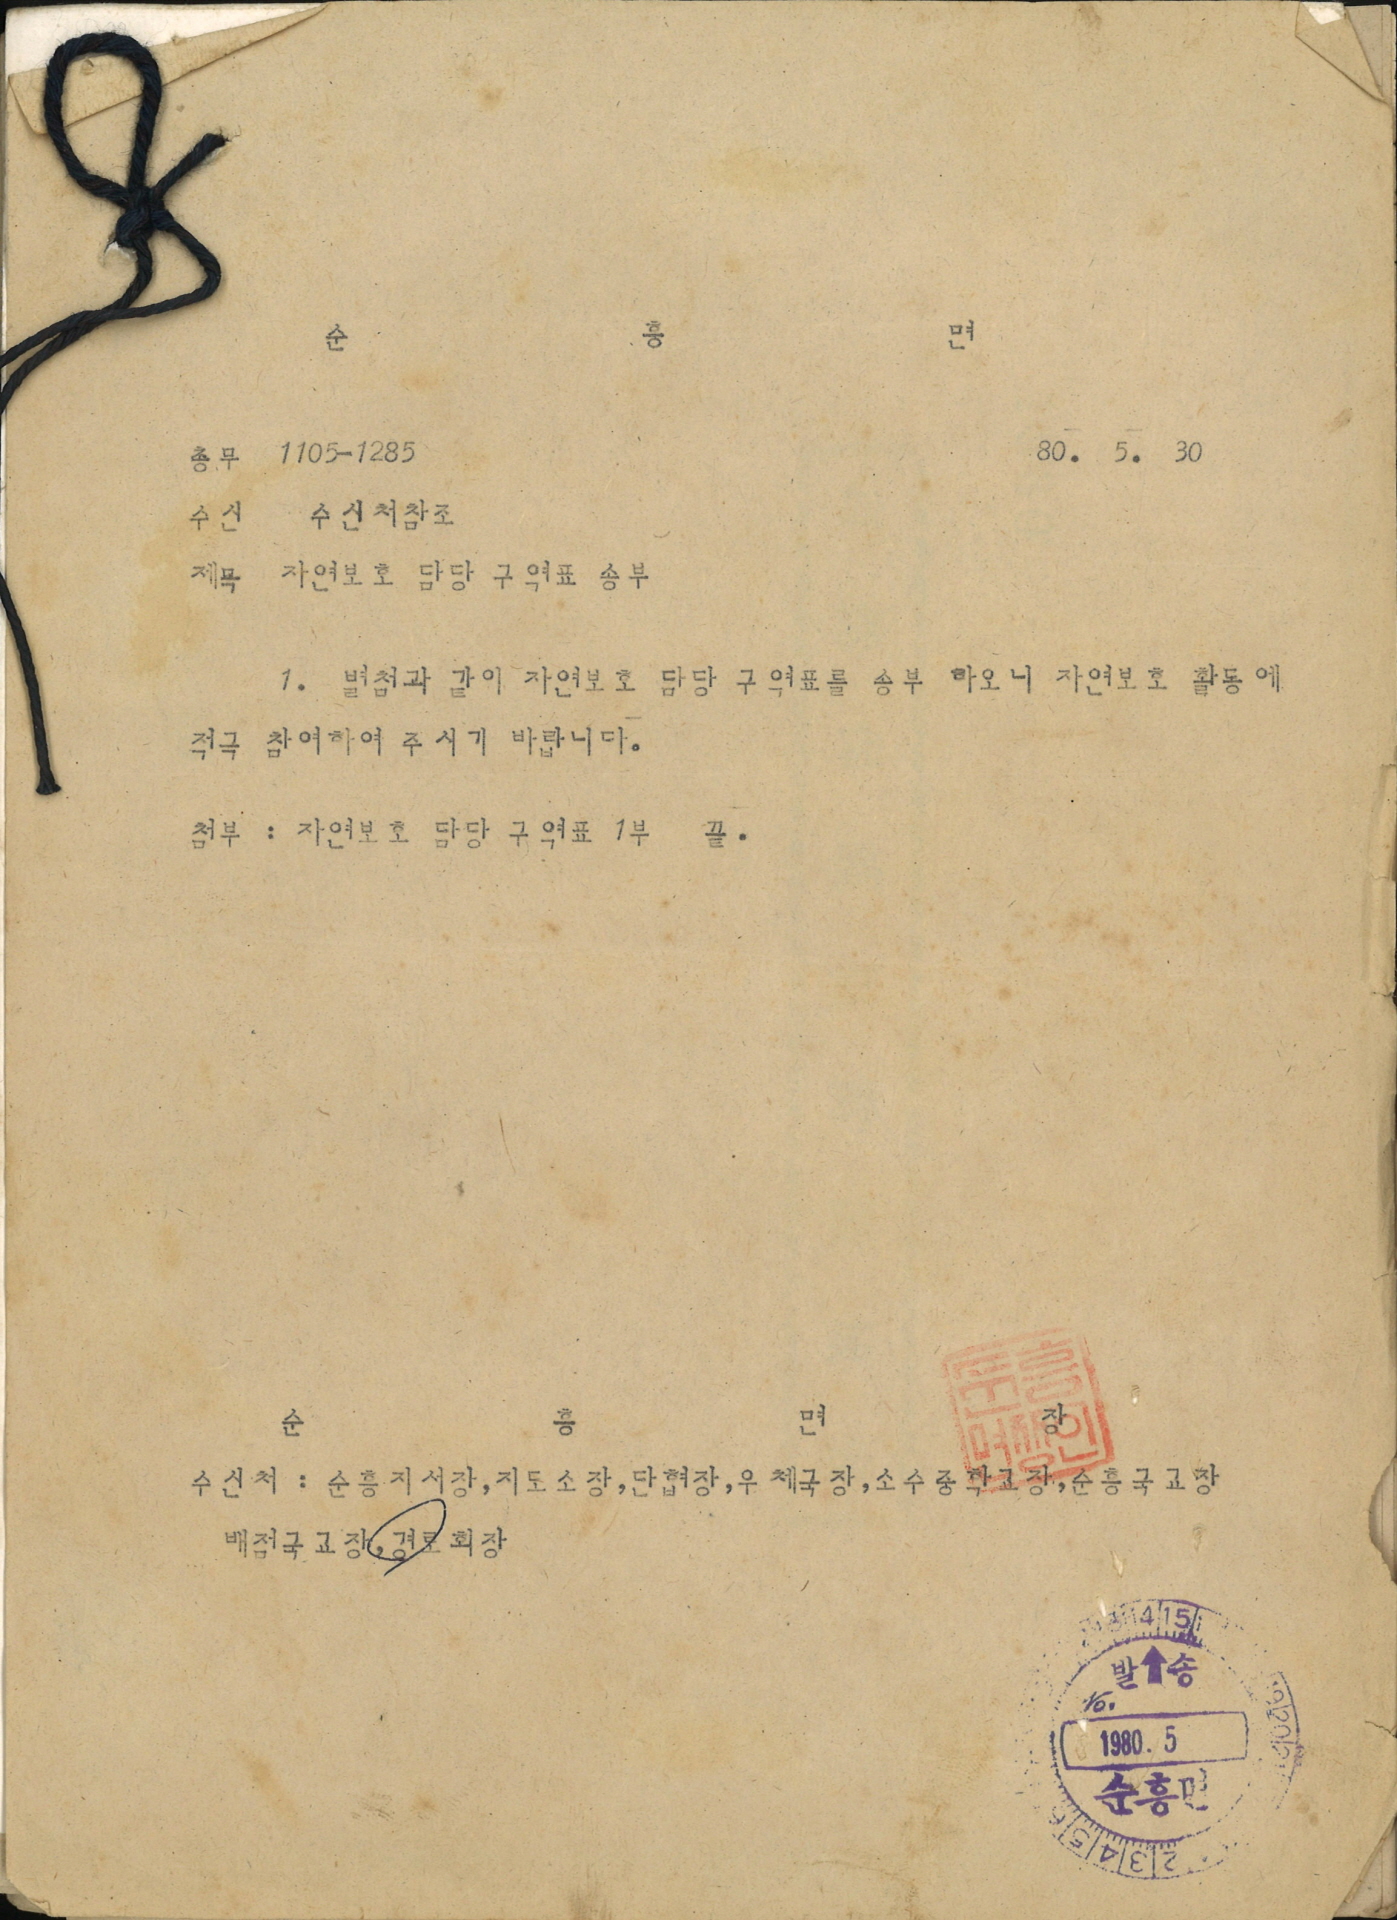 순 흥 면
총무 1105-1285 80. 5. 30
수신 수신처참조
제목 자연보호 담당 구역표 송부
1. 별첨과 같이 자연보호 담당 구역표를 송부 하오니 자연보호 활동에
적극 참여하여 주시기 바랍니다.
첨부 : 자연보호 담당 구역표 1부 끝.
순 흥 면 장
수신처 : 순흥지서장,지도소장,단협장,우체국장,소수중학교장,순흥국교장
배점국교장,경로회장
14 15
발 송
1980. 5
순흥면
2 3 4 5 6